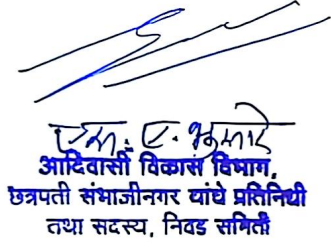 एम. ए. कुमारे
आदिवासी विकास विभाग,
छत्रपती संभाजीनगर यांचे प्रतिनिधी
तथा सदस्य, निवड समिती